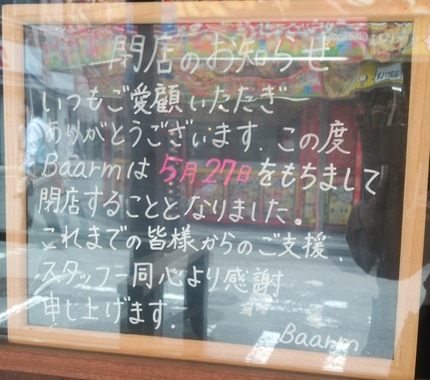 閉店のお知らせ
いつもご愛顧いただき
ありがとうございます。この度
Baarmは5月27日をもちまして
閉店することとなりました。
これまでの皆様からのご支援、
スタッフ一同心より感謝
申し上げます。
Baarm